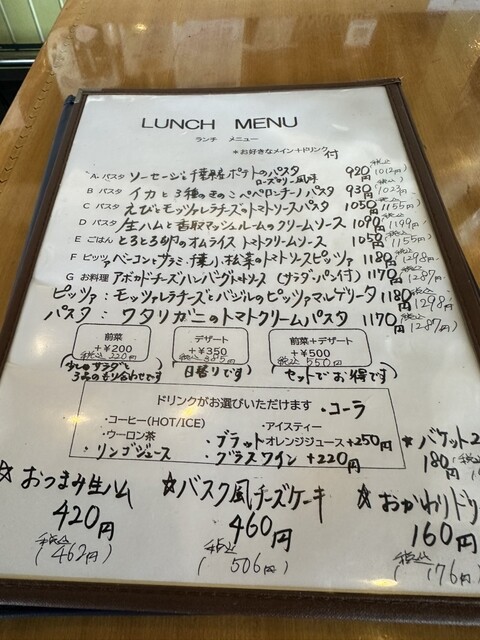 LUNCH MENU
ランチ メニュー
*お好きなメイン+ドリンク付
A パスタ ソーセージと千葉県産ポテトのパスタ ローズマリー風味 920円 (税込1012円)
B パスタ イカと3種のきのこペペロンチーノパスタ 930円 (税込1023円)
C パスタ えびとモッツァレラチーズのトマトソースパスタ 1050円 (税込1155円)
D パスタ 生ハムと香取マッシュルームのクリームソース 1090円 (税込1199円)
E ごはん とろとろ卵のオムライス トマトクリームソース 1050円 (税込1155円)
F ピッツァ ベーコンとサラミ、千葉小松菜のトマトソースピッツァ 1180円 (税込1298円)
G お料理 アボカドチーズハンバーグトマトソース (サラダ・パン付) 1170円 (税込1287円)
ピッツァ:モッツァレラチーズとバジルのピッツァマルゲリータ 1180円 (税込1298円)
パスタ:ワタリガニのトマトクリームパスタ 1170円 (税込1287円)
前菜 +¥200 (税込220円)
少しのサラダと3品のもり合わせです
デザート +¥350 (税込385円)
日替りです
前菜+デザート +¥500 (税込550円)
セットでお得です
ドリンクがお選びいただけます ・コーラ
・コーヒー(HOT/ICE) ・アイスティー
・ウーロン茶 ・ブラッドオレンジジュース+250円
・リンゴジュース ・グラスワイン +220円
☆バケット2
180円 (税込
☆おつまみ生ハム
420円
(税込462円)
☆バスク風チーズケーキ
460円
(税込506円)
☆おかわりドリ
160円
(税込176円)